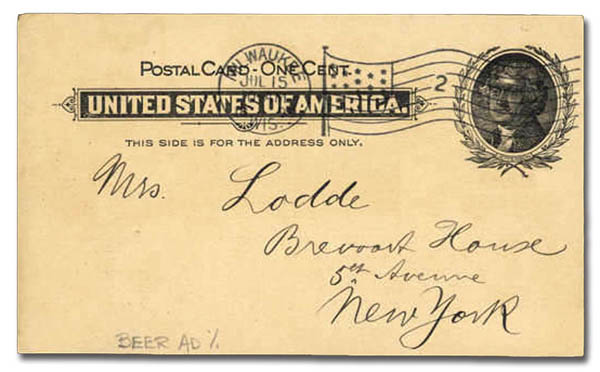 MILWAUKEE
JUL 15
WIS.
2
POSTAL CARD - ONE CENT.
UNITED STATES OF AMERICA.
THIS SIDE IS FOR THE ADDRESS ONLY.
Mrs. Lodde
Brevoort House
5th Avenue
New York
BEER AD %